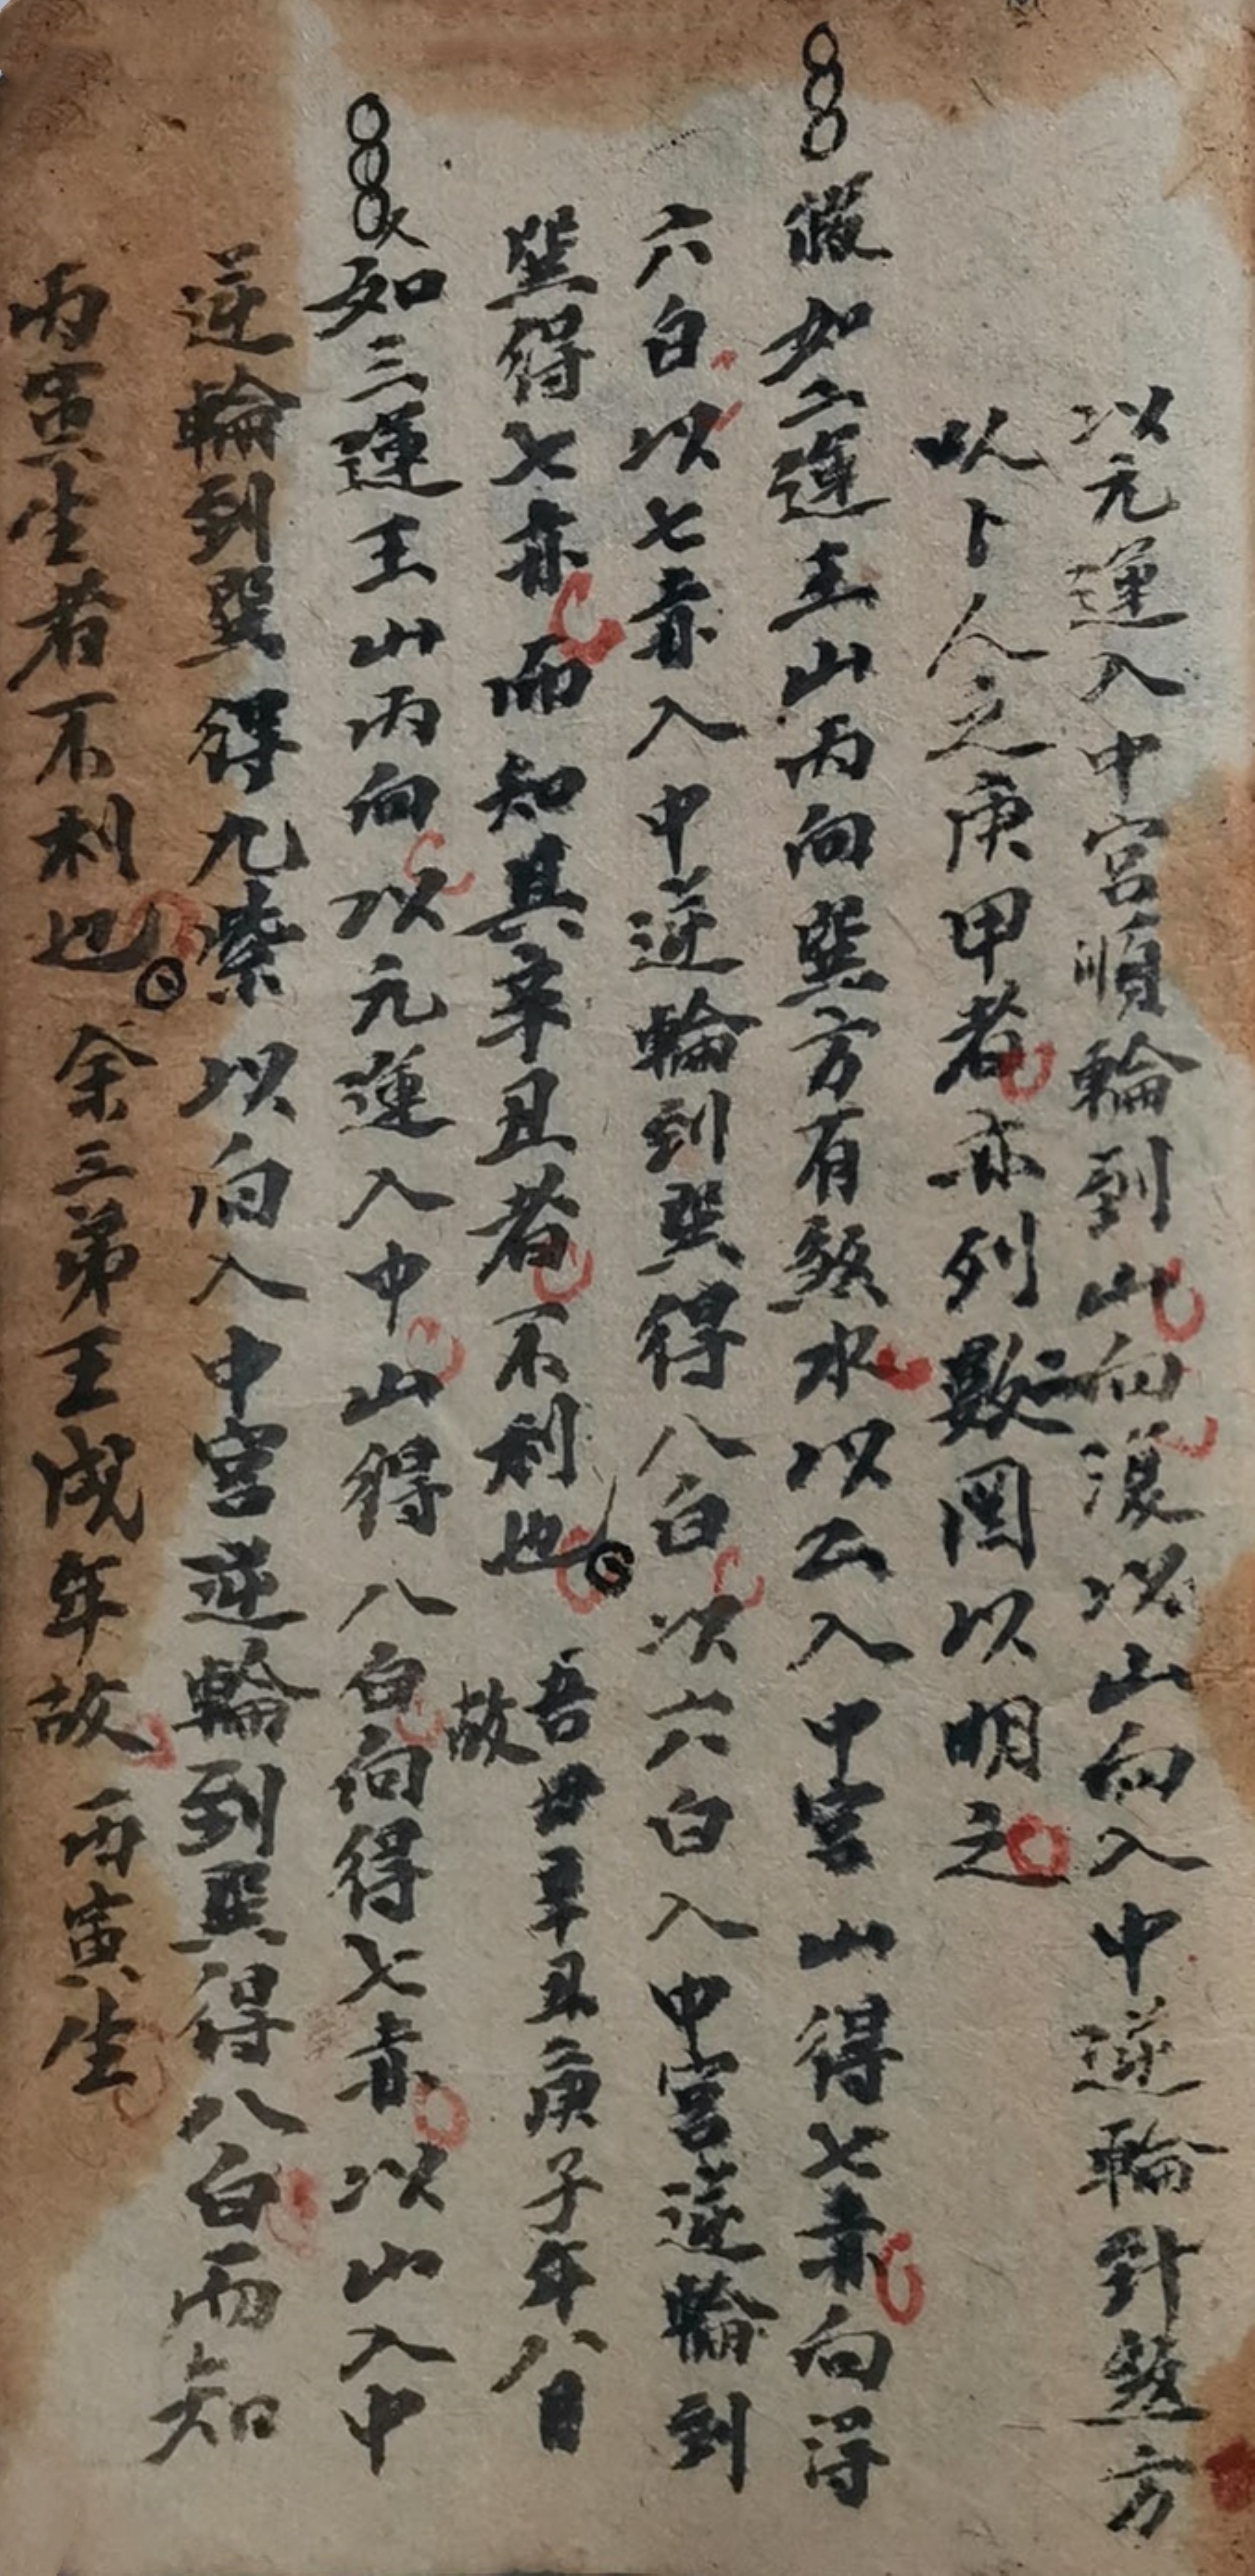 以元運入中宮順輪到山向復以山向入中逆輪到煞方
以卜人之庚甲者亦列數圖以明之
假如二運壬山丙向巽方有煞水以二入中宮山得七赤向得
六白以七赤入中逆輪到巽得八白次六白入中宮逆輪到
巽得七赤而知其辛丑者不利也 吾母辛丑庚子年八月故
又如三運壬山丙向以元運入中山得八白向得七赤以山入中
逆輪到巽得九紫以向入中宮逆輪到巽得八白而知
丙寅生者不利也 余三弟壬戌年故丙寅生